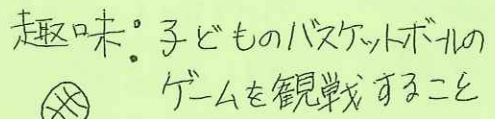 趣味:子どものバスケットボールの
ゲームを観戦すること